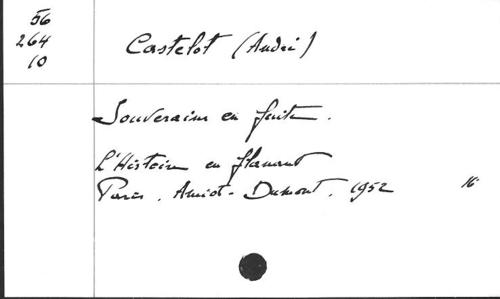 56
264
10
Castelot (André)
Souverains en fuite.
L'Histoire en flânant
Paris. Amiot-Dumont. 1952 16°